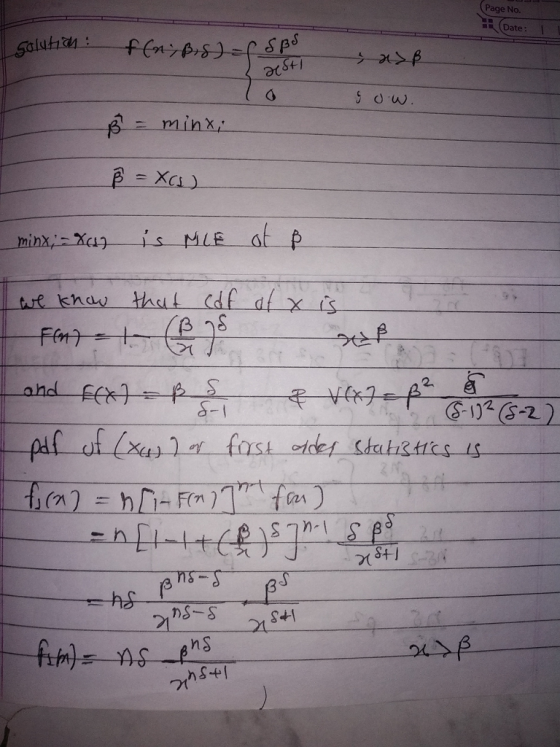 Page No.
Date:
Solution: f(x; β, δ) = { δβ^δ / x^(δ+1) ; x>β
0 ; o.w.
β̂ = min xᵢ
β̂ = X(1)
min xᵢ = X(1) is MLE of β
we know that cdf of x is
F(x) = 1 - (β/x)^δ x≥β
and E(X) = β δ/(δ-1) & V(X) = β² δ/((δ-1)²(δ-2))
pdf of (X(1)) or first order statistics is
f₁(x) = n[1-F(x)]^(n-1) f(x)
= n[1-1+(β/x)^δ]^(n-1) δβ^δ / x^(δ+1)
= nδ β^(nδ-δ) / x^(nδ-δ) β^δ / x^(δ+1)
f₁(x) = nδ β^(nδ) / x^(nδ+1) x>β